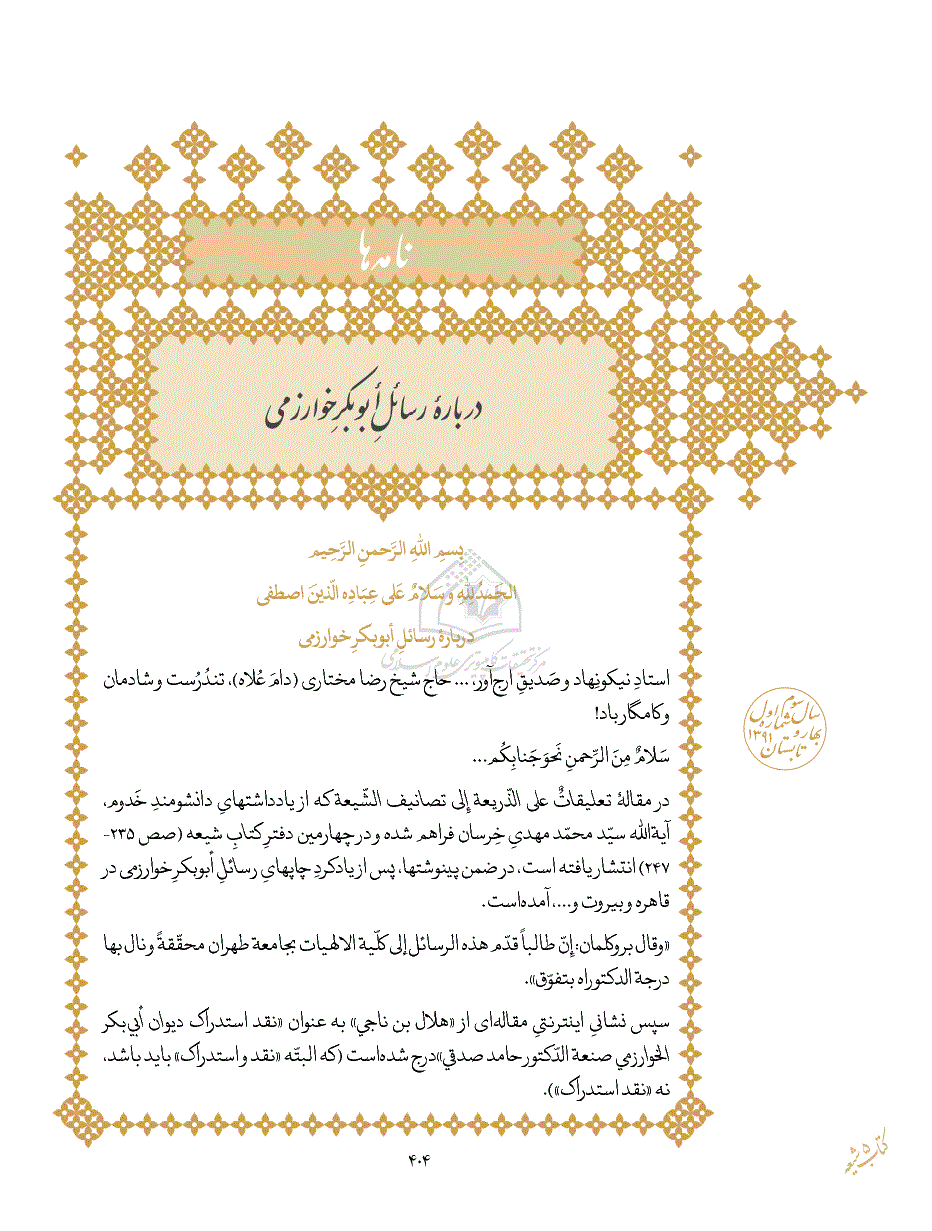 نامه‌ها
دربارهٔ رسائلِ أبوبکرِ خوارزمی
بِسمِ اللهِ الرَّحمنِ الرَّحِیم
الحَمدُ للهِ وَ سَلامٌ عَلی عِبَادِه الّذینَ اصطفی
دربارهٔ رسائلِ أبوبکرِ خوارزمی
مرکز تحقیقات کامپیوتری علوم اسلامی
استادِ نیکونِهاد و صَدیقِ ارج‌آور، ... حاج شیخ رضا مختاری (دامَ عُلاه)، تندُرُست و شادمان
و کامگار باد!
سَلامٌ مِنَ الرّحمنِ نَحوَ جَنابِکُم...
در مقالهٔ تعلیقاتٌ علی الذّریعة إلی تصانیف الشّیعة که از یادداشتهایِ دانشومندِ خَدوم،
آیةالله سیّد محمّد مهدیِ خِرسان فراهم شده و در چهارمین دفترِ کتابِ شیعه (صص ۲۳۵-
۲۴۷) انتشار یافته است، در ضمن پینوشتها، پس از یادکردِ چاپهایِ رسائلِ أبوبکرِ خوارزمی در
قاهره و بیروت و...، آمده‌است.
«وقال بروکلمان: إنّ طالباً قدّم هذه الرسائل إلی کلّیة الالهیات بجامعة طهران محقّقةً ونال بها
درجة الدکتوراه بتفوّق».
سپس نشانیِ اینترنتیِ مقاله‌ای از «هلال بن ناجي» به عنوان «نقد استدراک دیوان أبي بکر
الخوارزمي صنعة الدّکتور حامد صدقي» درج شده‌است (که البتّه «نقد و استدراک» باید باشد،
نه «نقد استدراک»).
سال سوم
شماره اول
بهار و
تابستان ۱۳۹۱
۴۰۴
کتاب شیعه ۵